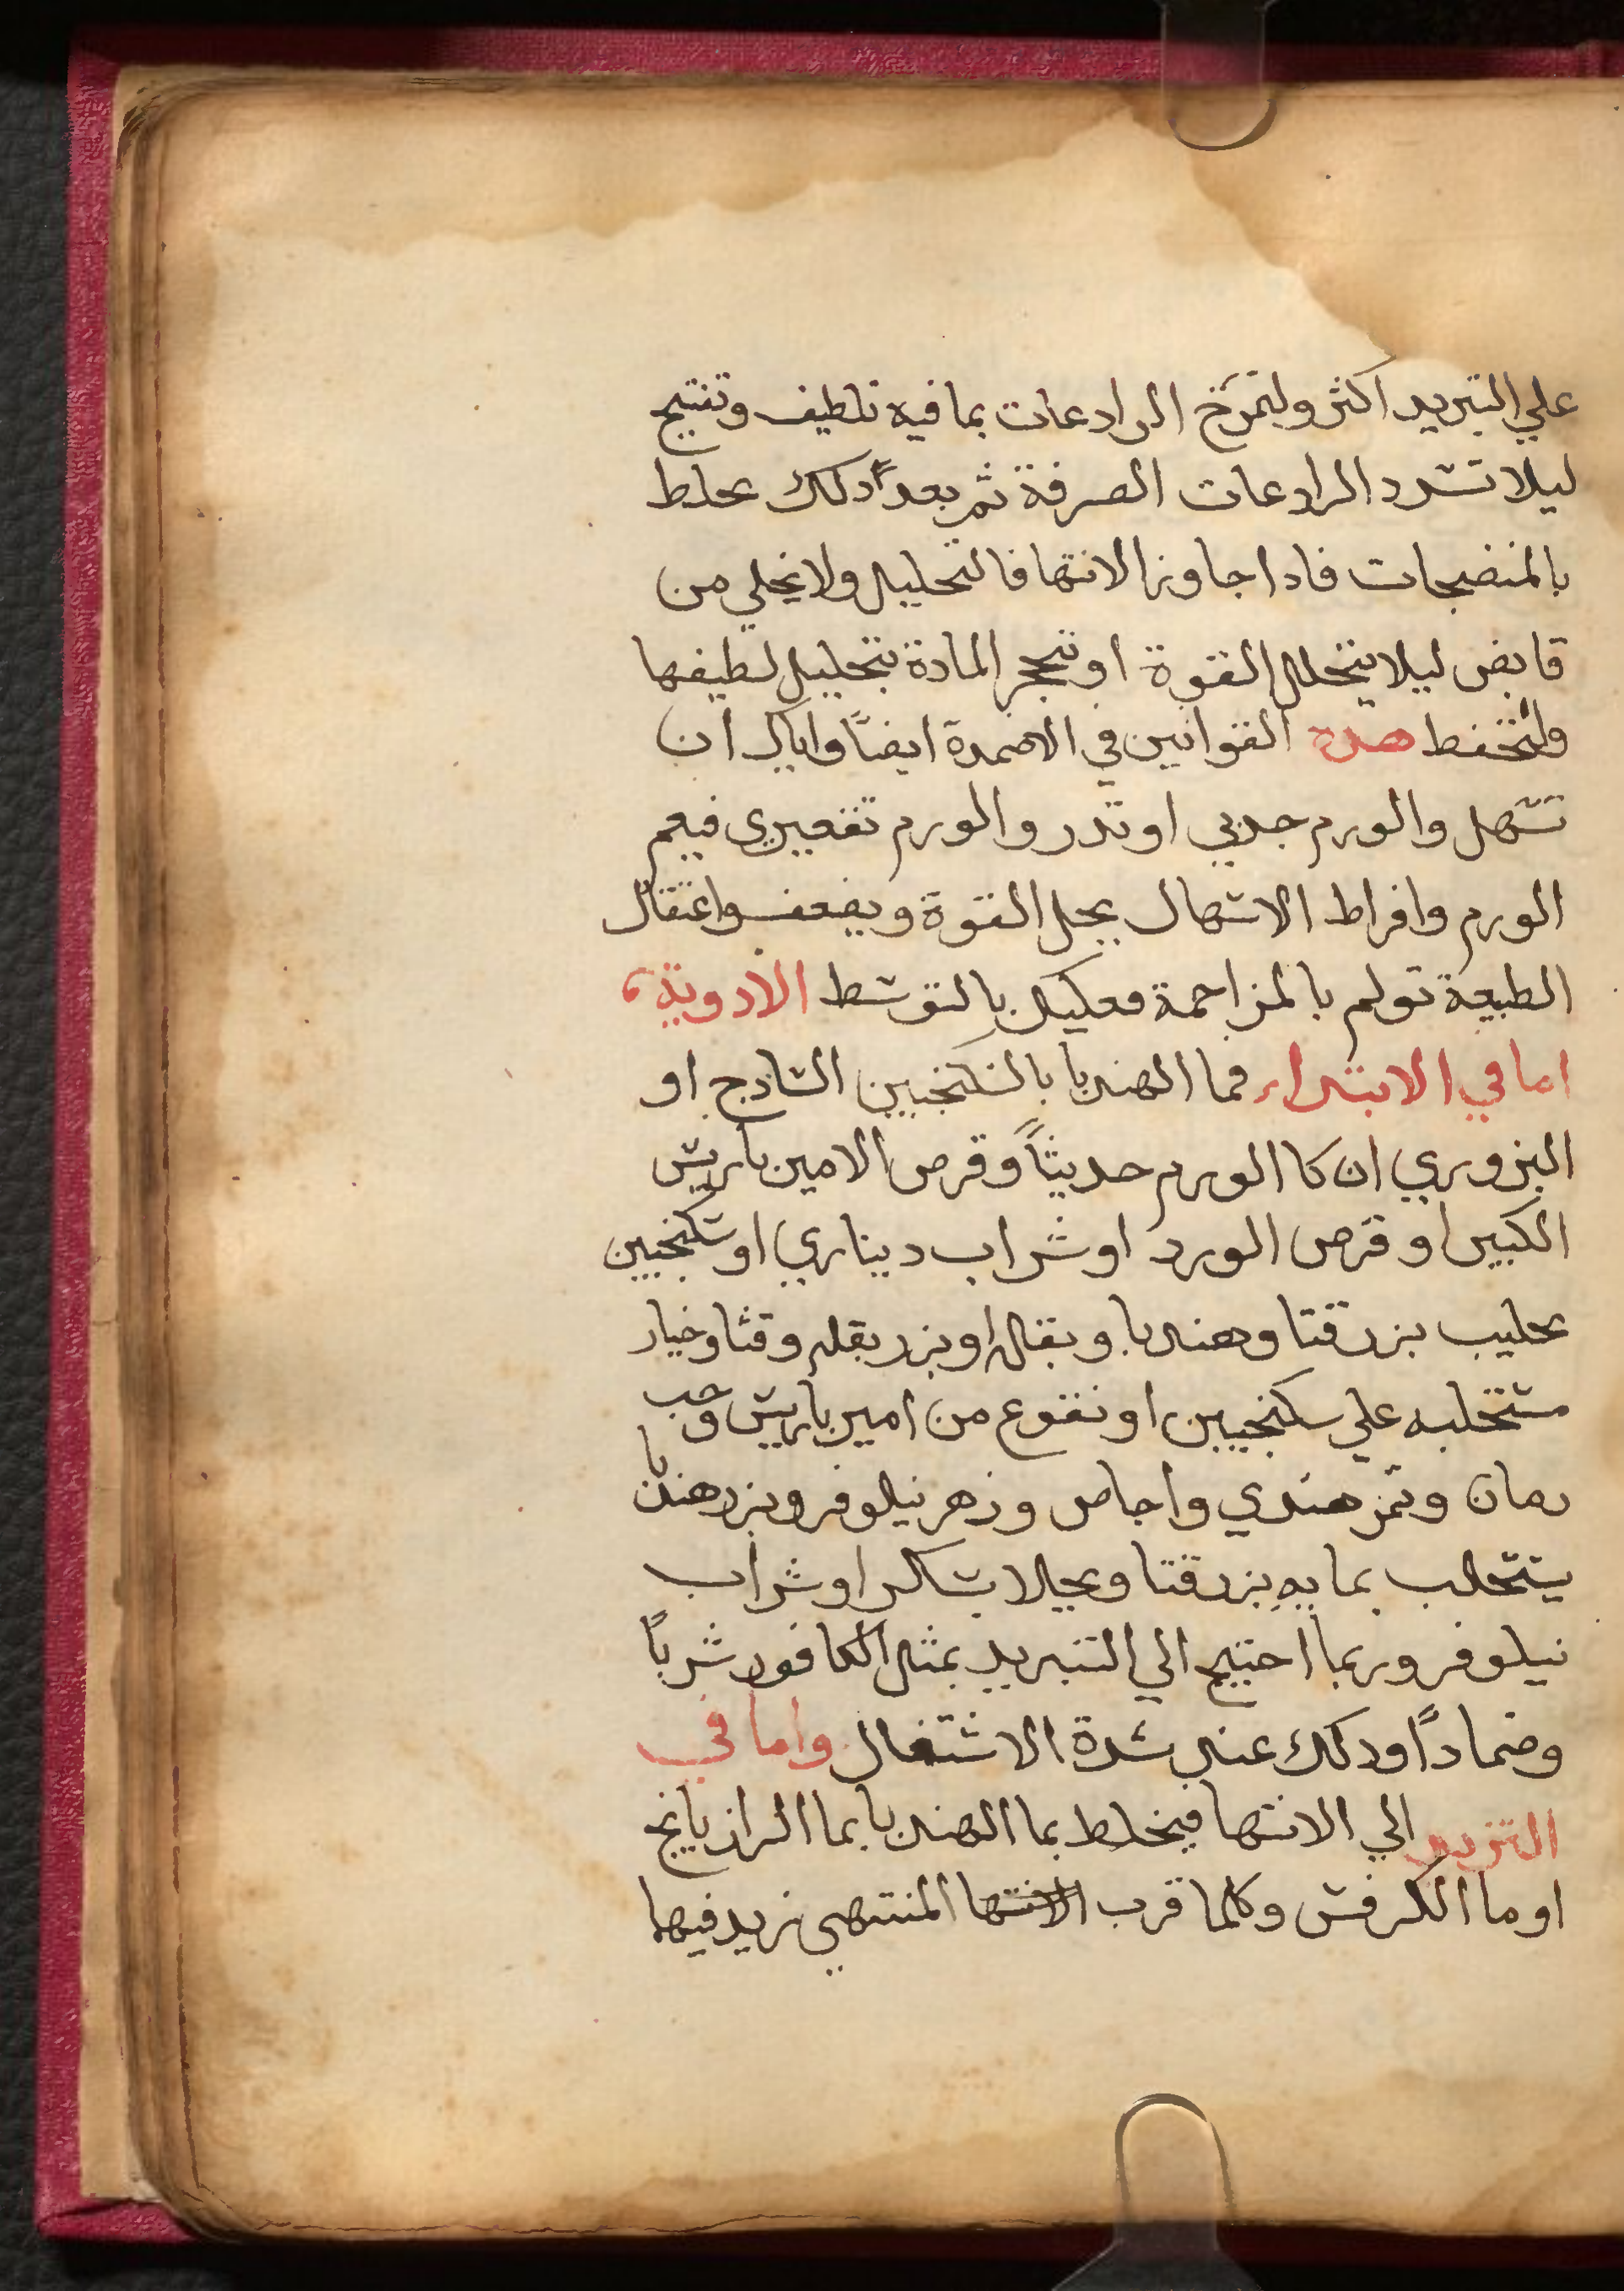 علي التبريد اكثر ولتمزج الرادعات بما فيه تلطيف وتفتيح
ليلا تسدد الرادعات الصرفة ثم بعد دلك تخلط
بالمنضجات فادا جاوز الانتها فالتحليل ولا يخلي من
قابض ليلا يتحلل القوة او تتحجر المادة بتحليل لطيفها
ولتحفط هده القوانين في الاضمدة ايضاً واياك ان
تسهل والورم حدبي او تدر والورم تقعيري فيعم
الورم وافراط الاسهال يحل القوة ويضعف واعتقال
الطبيعة تولم بالمزاحمة فعليك بالتوسط الادوية
اما في الابتداء فما الهندبا بالسكنجبين السادج او
البزوري ان كا الورم حديثاً وقرص الامير باريس
الكبير او قرص الورد او شراب ديناري او سكنجبين
بحليب بزر قتا وهندبا وبقله او بزر بقله وقثا وخيار
مستحلبه علي سكنجبين او نقوع من امير باريس وحب
رمان وتمر هندي واجاص وزهر نيلوفر وبزر هندبا
يستحلب بمايه بزر قتا ويحلا بسكر او شراب
نيلوفر وربما احتيج الي التبريد بمثل الكافور شرباً
وضماداً ودلك عند شدة الاشتعال واما في
التزيد الي الانتها فيخلط بما الهندبا بما الرازيانج
او ما الكرفس وكلما قرب الانتها المنتهي زيد فيها